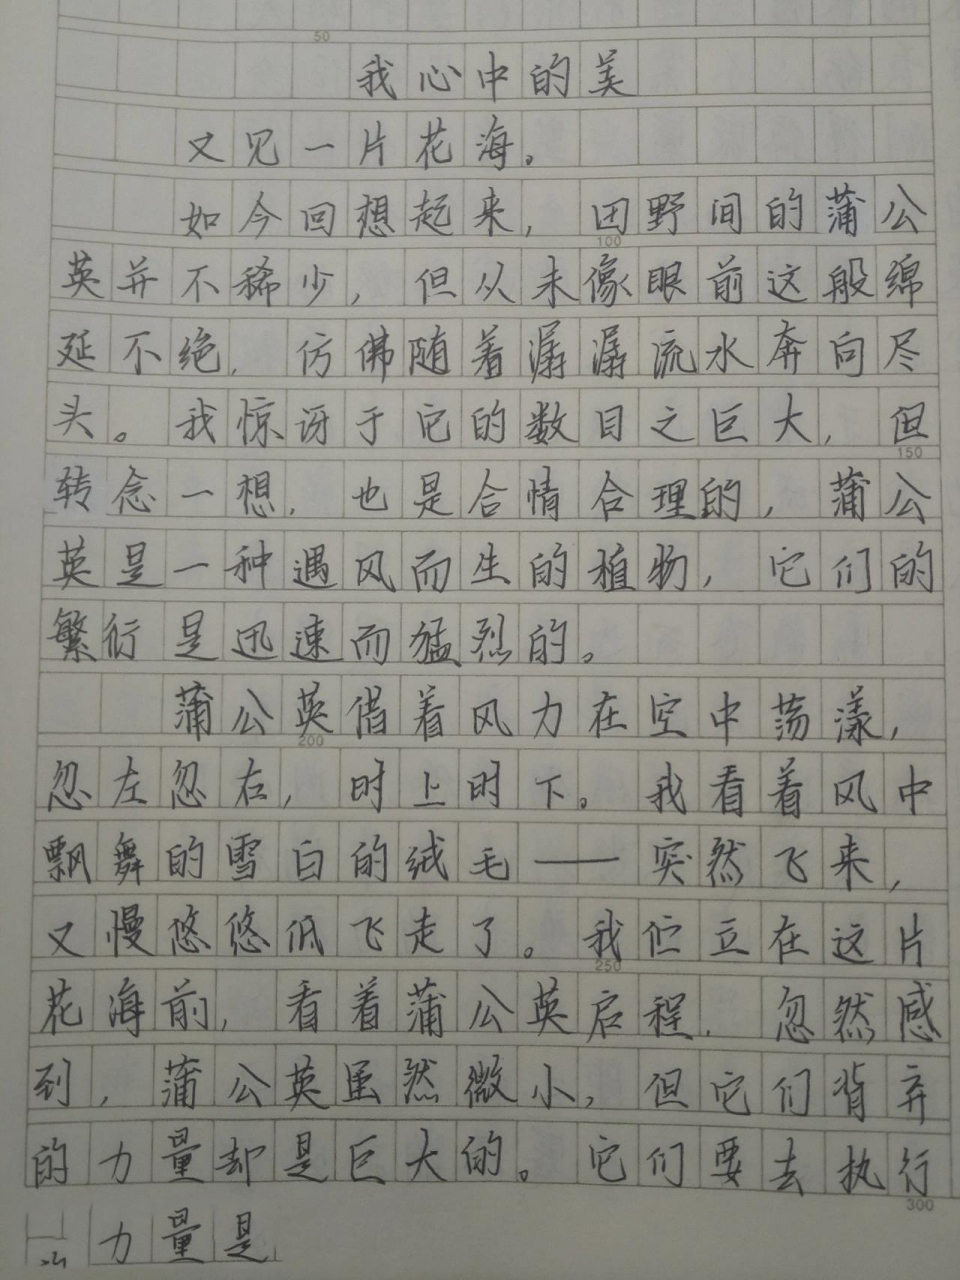 50
我心中的美
又见一片花海。
如今回想起来，田野间的蒲公
100
英并不稀少，但从未像眼前这般绵
延不绝，仿佛随着潺潺流水奔向尽
头。我惊讶于它的数目之巨大，但
150
转念一想，也是合情合理的，蒲公
英是一种遇风而生的植物，它们的
繁衍是迅速而猛烈的。
蒲公英借着风力在空中荡漾，
200
忽左忽右，时上时下。我看着风中
飘舞的雪白的绒毛——突然飞来，
又慢悠悠低飞走了。我伫立在这片
250
花海前，看着蒲公英启程，忽然感
到，蒲公英虽然微小，但它们背弃
的力量却是巨大的。它们要去执行
300
力量是